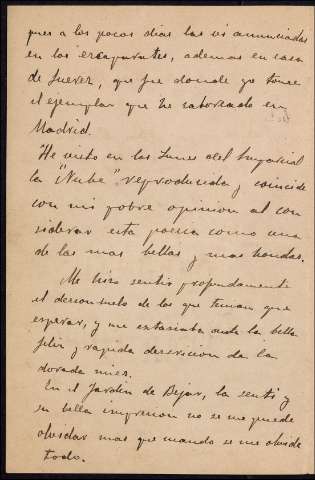 pues a los pocos dias las vi anunciadas
en los escaparates, ademas en casa
de Suarez, que fue donde yo tome
el ejemplar que he saboreado en
Madrid.
He visto en los Lunes del Imparcial
la "Nube" reproducida y coincide
con mi pobre opinion al con
siderar esta poesia como una
de las mas bellas y mas hondas.
Me hizo sentir profundamente
el desconsuelo de los que tenian que
esperar, y me extasiaba ante la bella
feliz y rapida descricion de la
dorada mies.
En el Jardin de Bejar, la senti y
su bella impresion no se me puede
olvidar mas que cuando se me olvide
todo.